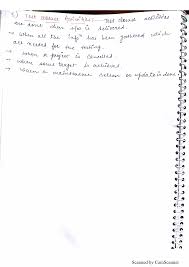 Test closure Activities:- Test closure activities
are done when s/w is delivered
→ when all the "info" has been gathered which
are needed for the testing.
→ when a project is cancelled
→ when some target is achieved
→ when a maintenance release or update is done
Scanned by CamScanner